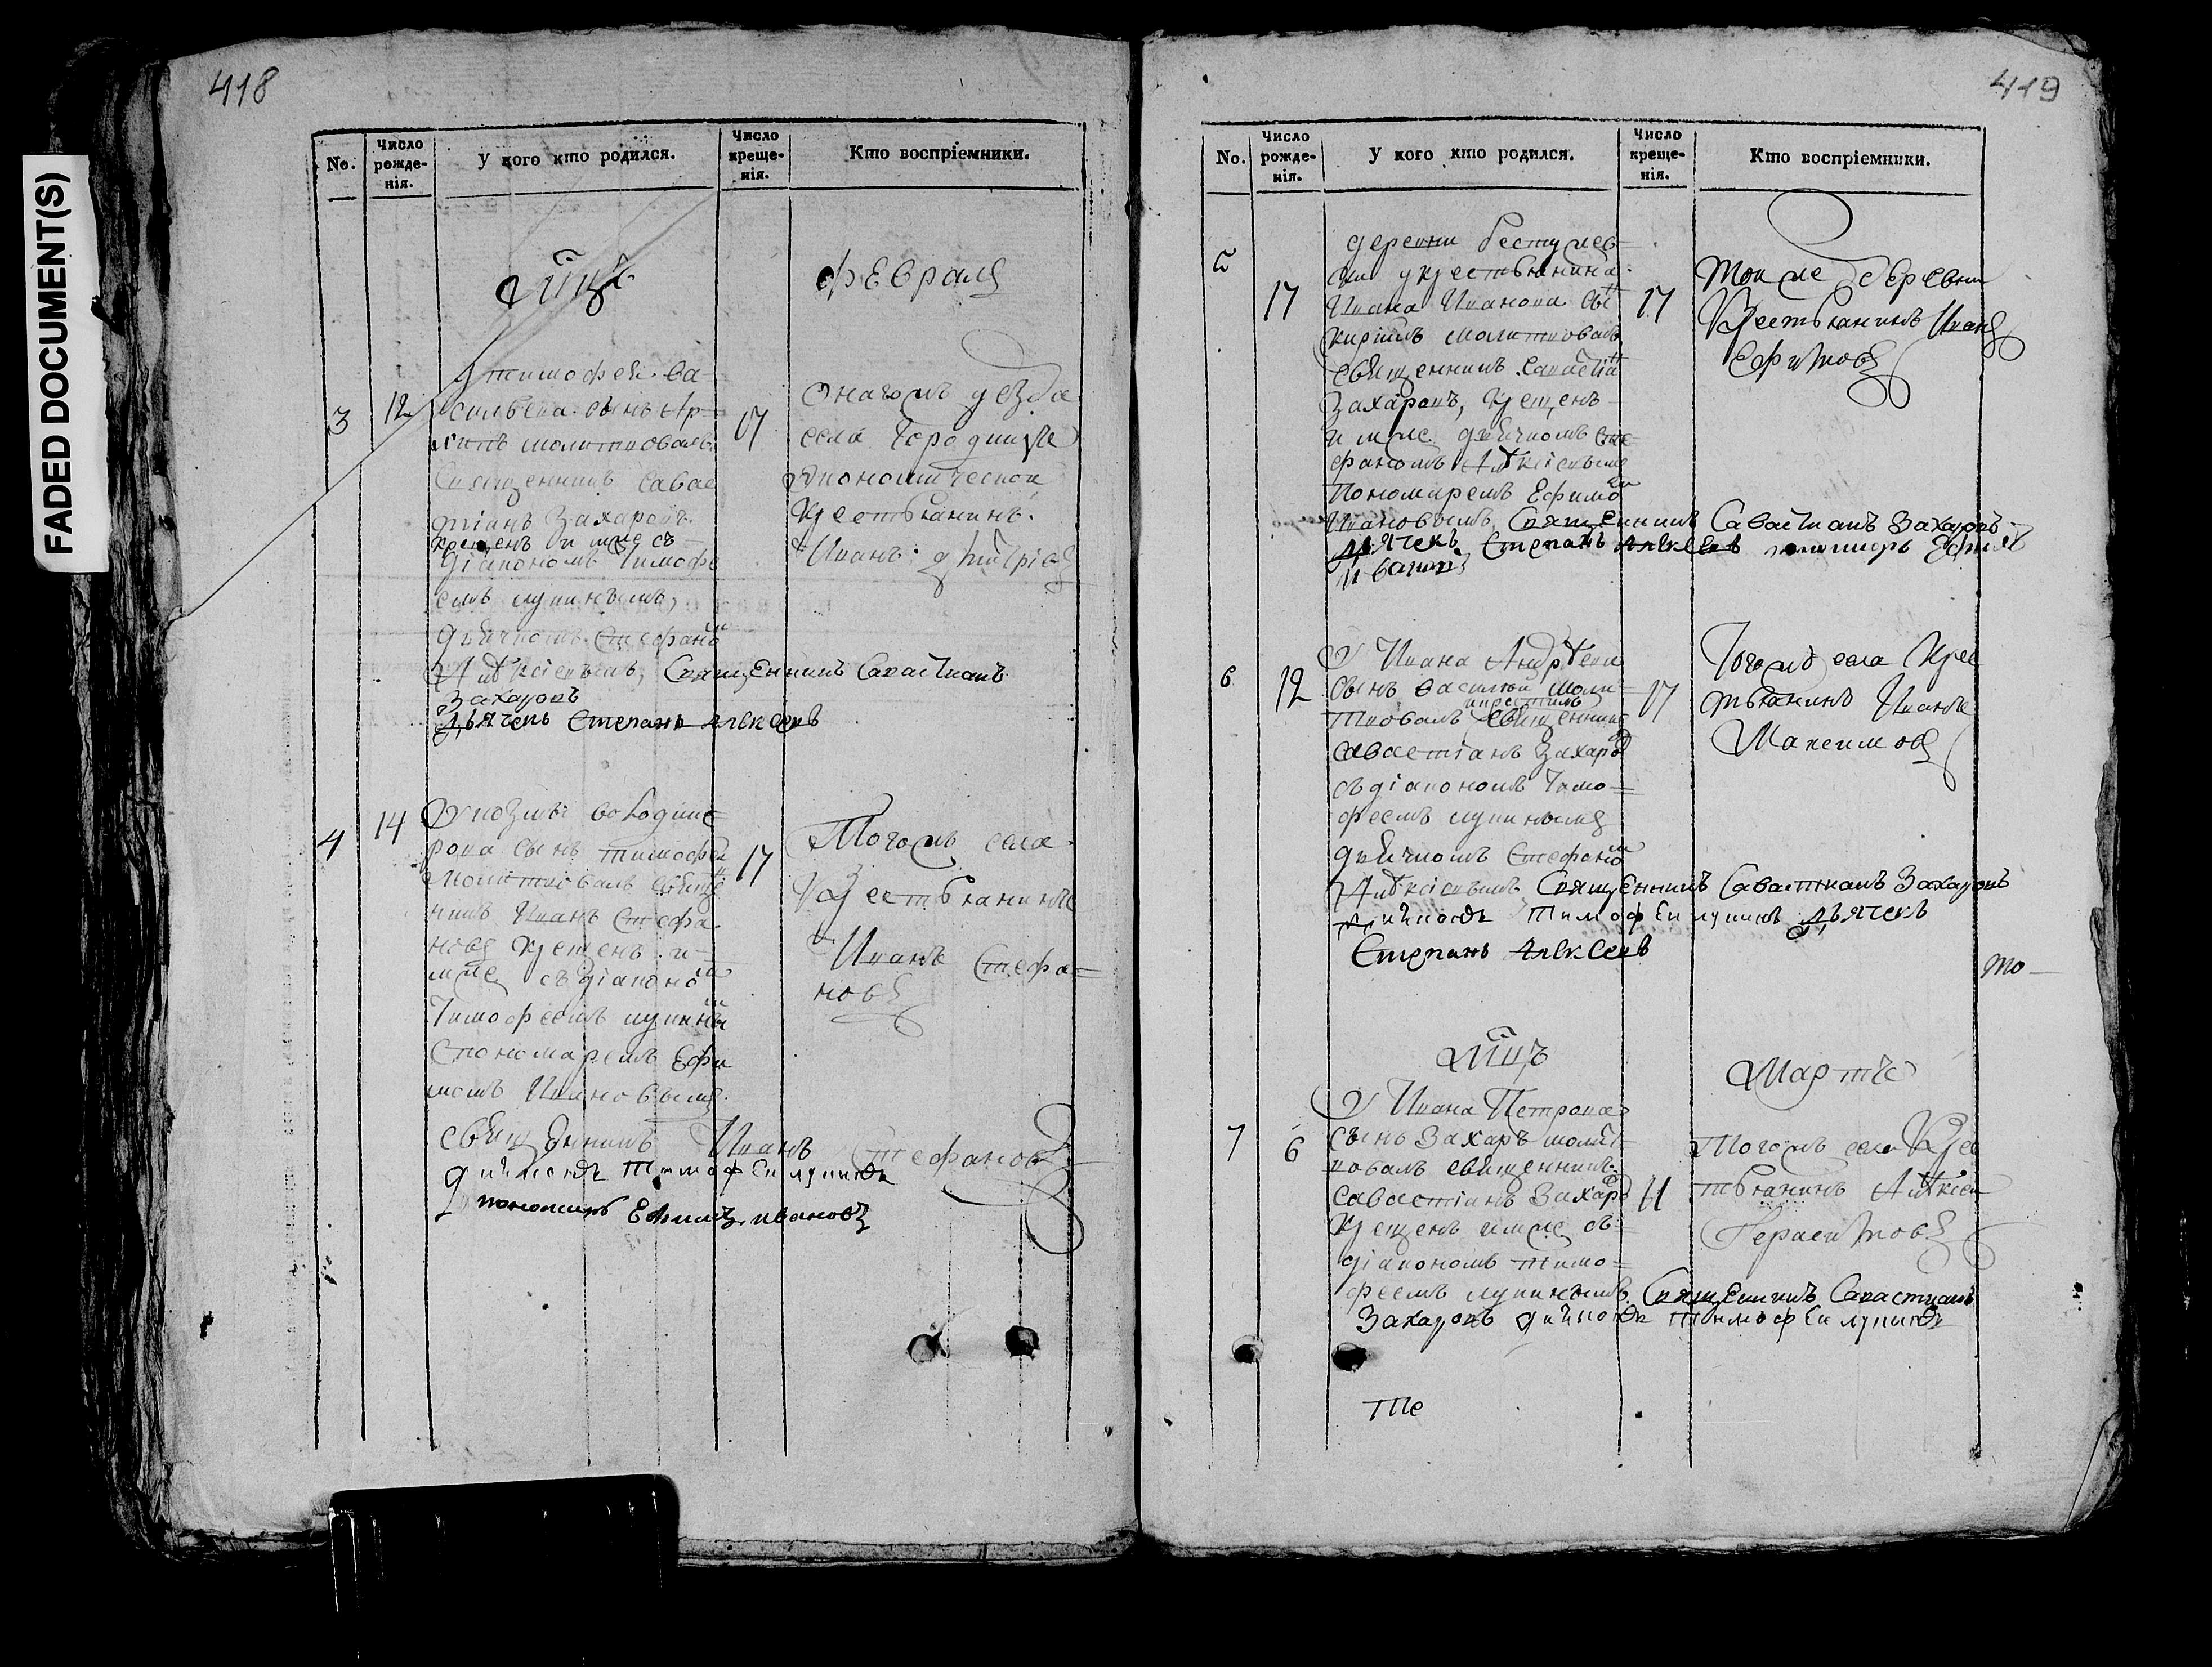 FADED DOCUMENT(S)
418
No.
Число рожде-нія.
У кого кто родился.
Число креще-нія.
Кто воспріемники.
Мцъ
Февраля
3
12
У тимофея ва-
сильева сынъ Ар-
хипъ молитвовалъ
Священникъ савас
тіанъ Захаровъ
крещенъ им же съ
діакономъ Тимофе
емъ лупинымъ,
дьячкомъ Стефаном
Алексіевымъ, Священникъ Савастианъ
Захаровъ
Дьячекъ Степанъ Алексеевъ
17
Онагожъ уезда
села Городища
экономической
Крестьянинъ
Иванъ Дмитріевъ
4
14
У козмы володиме
рова сынъ тимофей
молитвовалъ свяще
никъ Иванъ Стефа
новъ крещенъ и
мже съ діаконом
Тимофеемъ лупиным
Спономаремъ Ефи
момъ Ивановымъ
священникъ Иванъ Стефановъ
диаконъ Тимофеи лупинъ
пономарь Ефимъ ивановъ
17
Тогожъ села
Крестьянинъ
Иванъ Стефа=
новъ
419
No.
Число рожде-нія.
У кого кто родился.
Число креще-нія.
Кто воспріемники.
17
деревни
крестьянина
Ивана Иванова сынъ
кирилъ молитвовалъ
священникъ Савастіан
Захаровъ, крещенъ
им же дьячкомъ Сте
фаномъ Алексіевымъ
Пономаремъ Ефимом
Ивановымъ, Священникъ Савастианъ Захаровъ
Дьячекъ Степанъ Алексеевъ пономарь Ефимъ
Ивановъ
17
Тои же деревни
Крестьянинъ Иванъ
Ефимовъ
6
12
У Ивана Андреева
сынъ василей моли
твовалъ и крестилъ священникъ
савастіанъ Захаров
съ діакономъ Тимо=
феемъ лупинымъ
дьячкомъ Стефаном
Алексіевымъ Священникъ Савастианъ Захаровъ
диаконъ Тимофеи лупинъ Дьячекъ
Степанъ Алексеевъ
17
Тогожъ села Крес
тьянинъ Иванъ
Максимовъ
то-
Мцъ
Мартъ
7
6
У Ивана Петрова
сынъ Захаръ молит
вовалъ священникъ
савастіанъ Захаров
Крещенъ имже съ
діакономъ тимо=
феемъ лупинымъ, Священникъ Савастианъ
Захаровъ диаконъ Тимофеи лупинъ
11
Тогожъ села Крес
тьянинъ Алексіи
Герасимовъ
Тпе